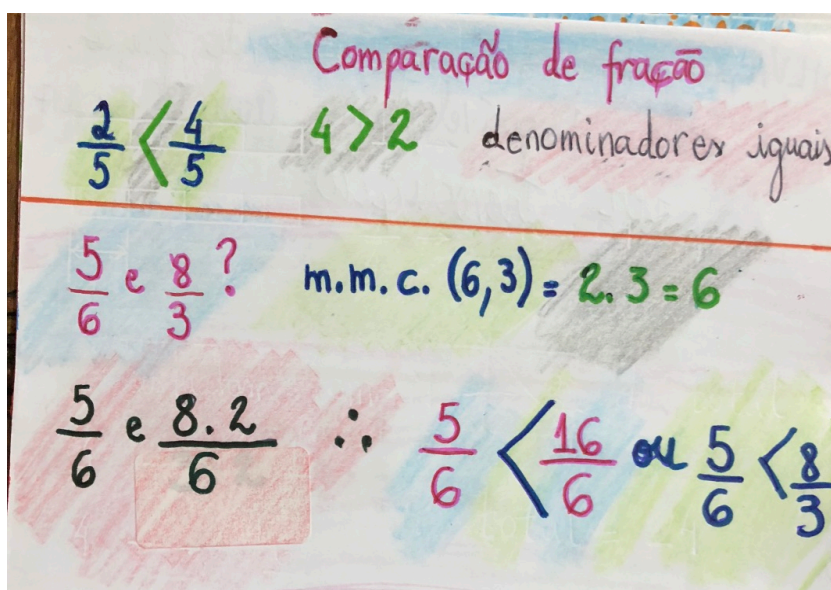 Comparação de fração
2/5 < 4/5 4 > 2 denominadores iguais
5/6 e 8/3 ? m.m.c. (6,3) = 2.3 = 6
5/6 e 8.2/6 ∴ 5/6 < 16/6 ou 5/6 < 8/3